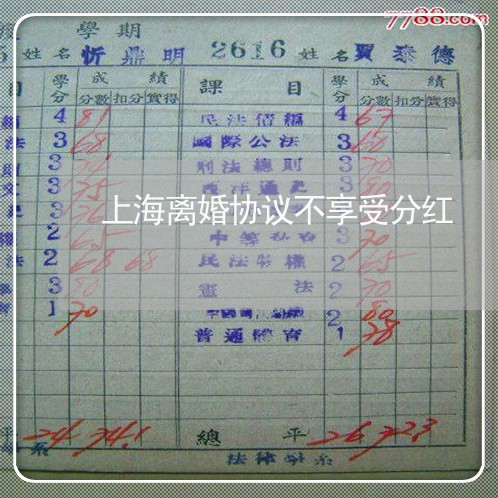 7788.com
學期
姓名 忻鼎明 2616 姓名 賈泰德
目 學分 成績 課目 學分 成績
分數 扣分 實得 分數 扣分 實得
4 81 民法債編 4 67
法 3 68 國際公法 3 60
3 刑法總則 3 70
3 75 西洋通史 3
上海离婚协议不享受分红
2 65 3 70
法 2 68 68 民法物權 2 65
3 80 憲法 2 70
1 70 2 80
普通體育 1 78
平 24 74.1 總平 26 72.3
系 法律學系